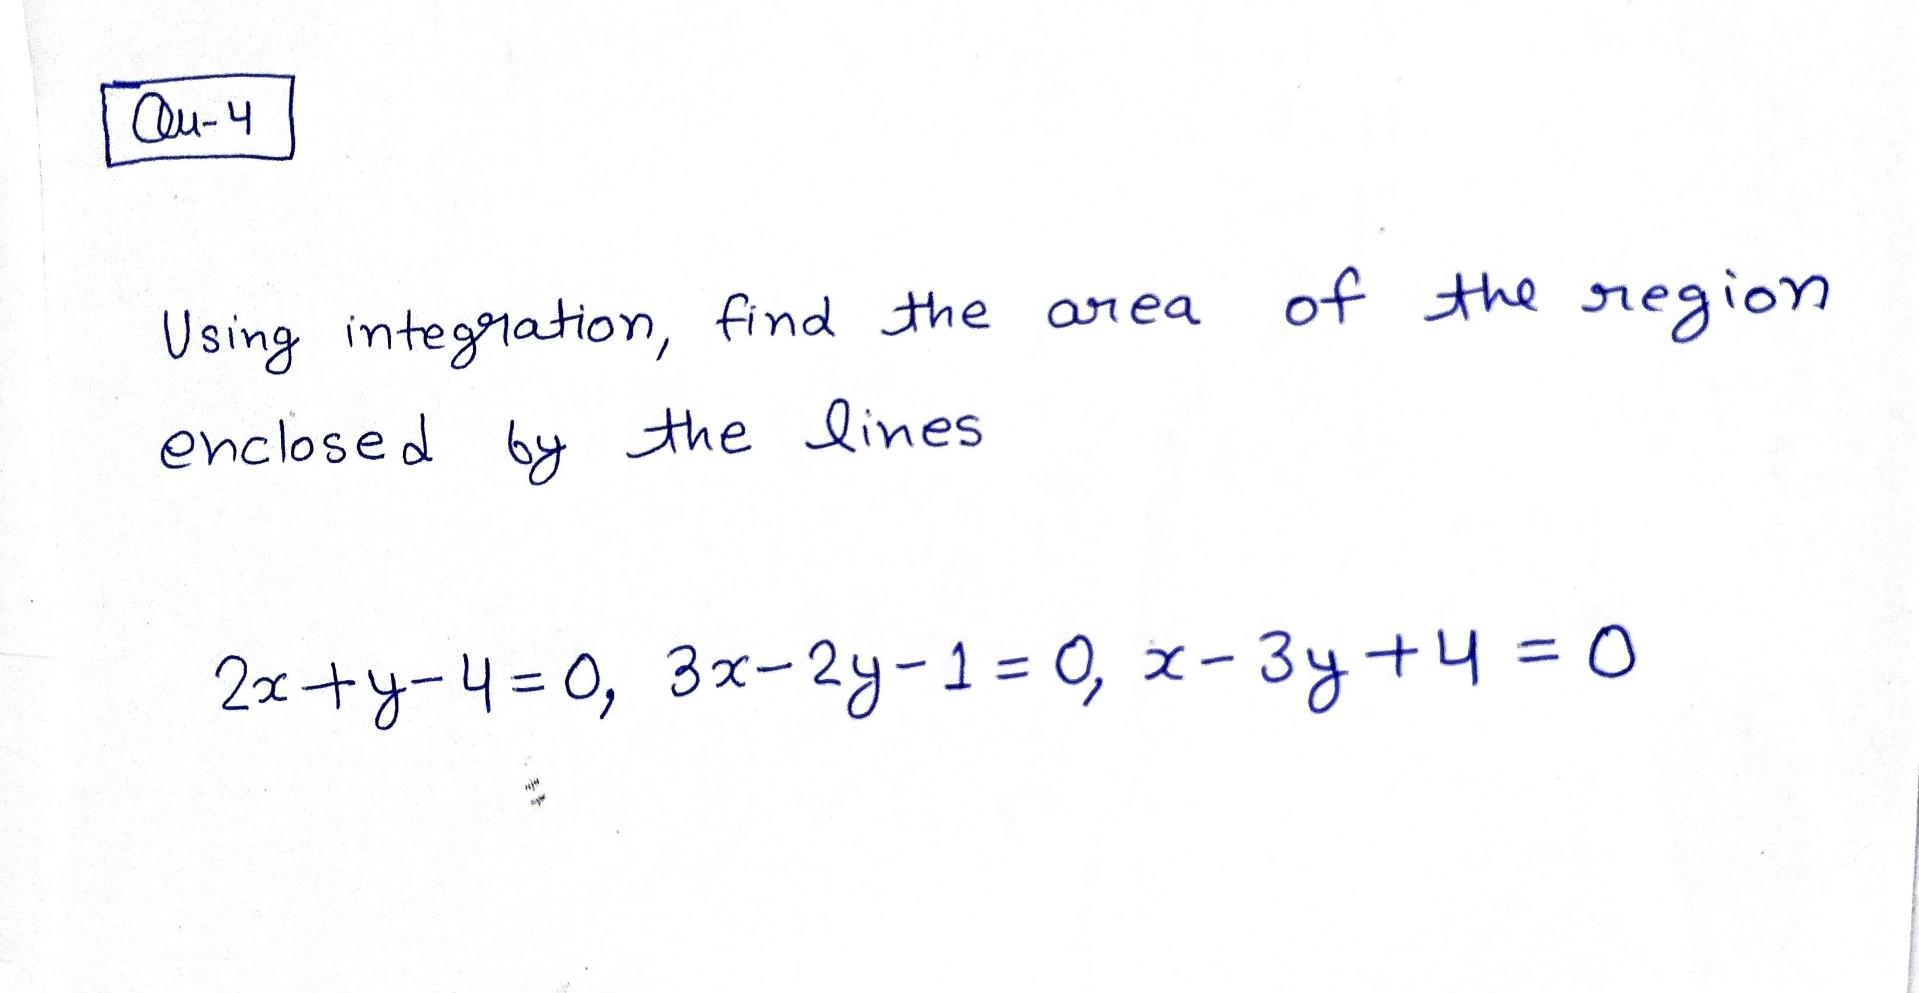 Qu-4
Using integration, find the area of the region
enclosed by the lines
2x+y-4=0, 3x-2y-1=0, x-3y+4=0